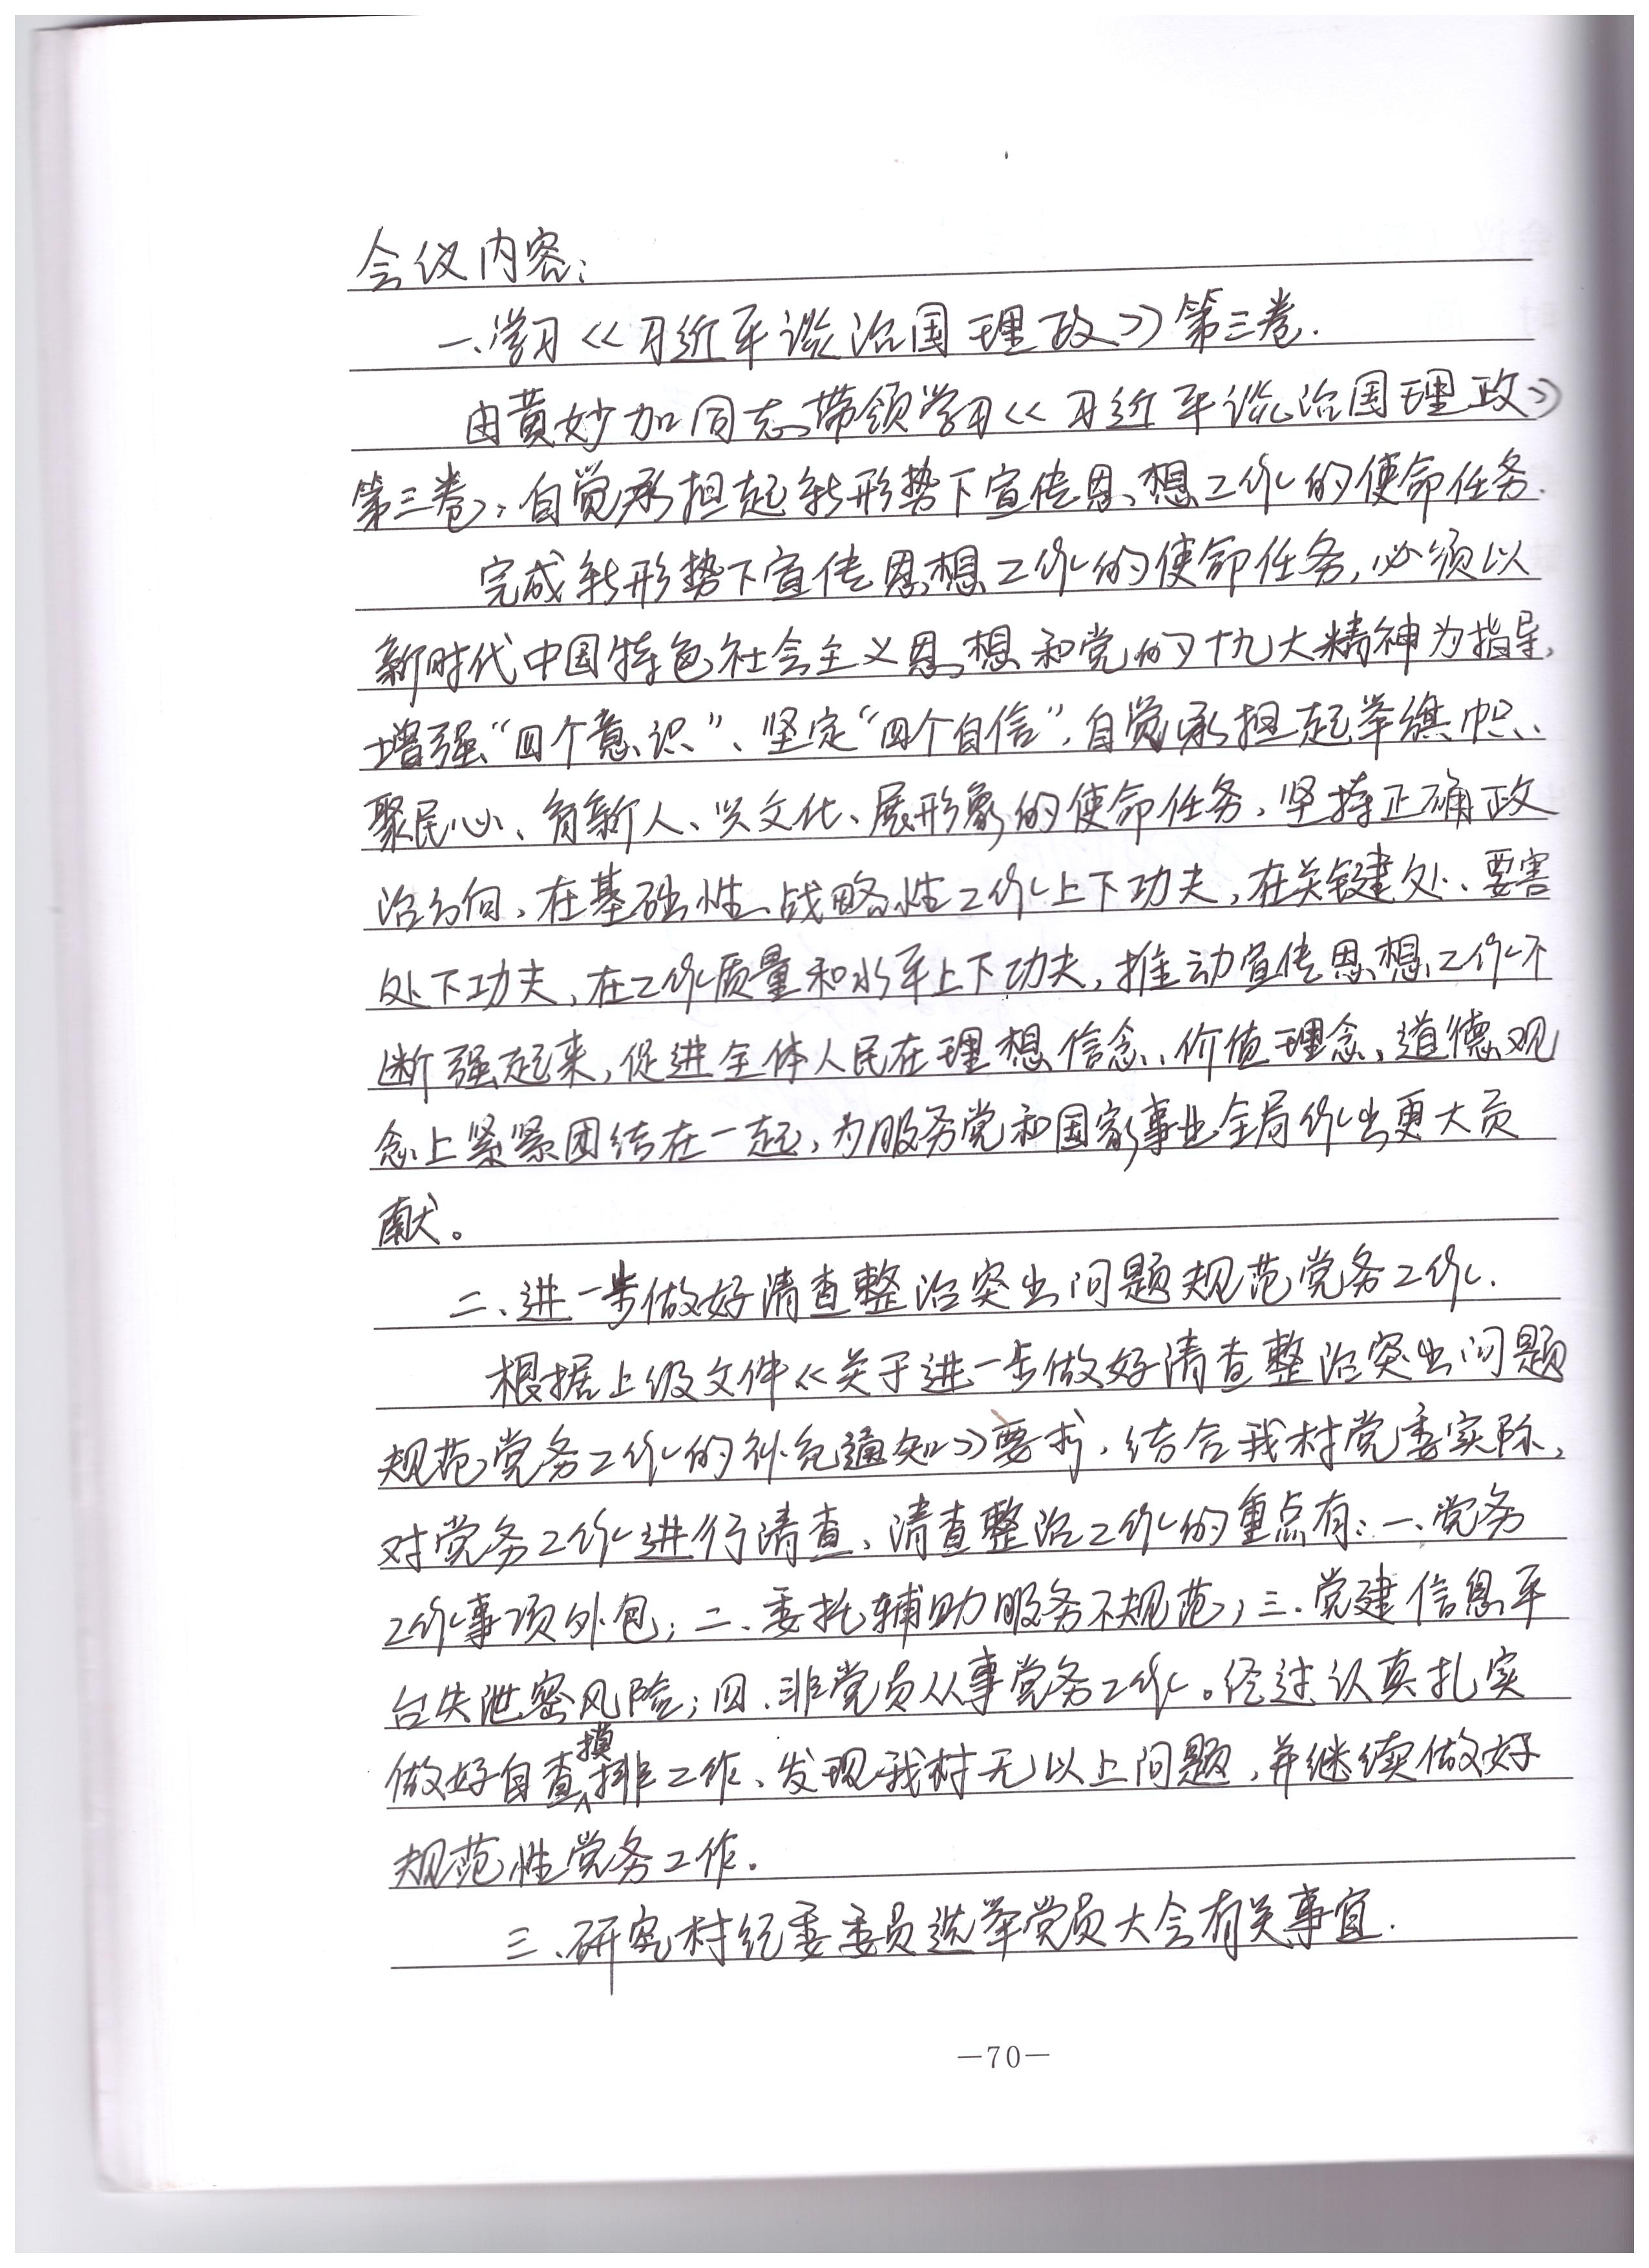 会议内容：
一、学习《习近平谈治国理政》第三卷.
由黄妙加同志带领学习《习近平谈治国理政》
第三卷；自觉承担起新形势下宣传思想工作的使命任务.
完成新形势下宣传思想工作的使命任务,必须以
新时代中国特色社会主义思想和党的十九大精神为指导,
增强“四个意识”、坚定“四个自信”,自觉承担起举旗帜、
聚民心、育新人、兴文化、展形象的使命任务,坚持正确政
治方向,在基础性、战略性工作上下功夫,在关键处、要害
处下功夫,在工作质量和水平上下功夫,推动宣传思想工作不
断强起来,促进全体人民在理想信念、价值理念,道德观
念上紧紧团结在一起,为服务党和国家事业全局作出更大贡
献。
二、进一步做好清查整治突出问题规范党务工作.
根据上级文件《关于进一步做好清查整治突出问题
规范党务工作的补充通知》要求,结合我村党委实际,
对党务工作进行清查,清查整治工作的重点有:一、党务
工作事项外包;二、委托辅助服务不规范;三.党建信息平
台失泄密风险;四.非党员从事党务工作。经过认真扎实
做好自查摸排工作、发现我村无以上问题,并继续做好
规范性党务工作.
三、研究村纪委委员选举党员大会有关事宜.
—70—